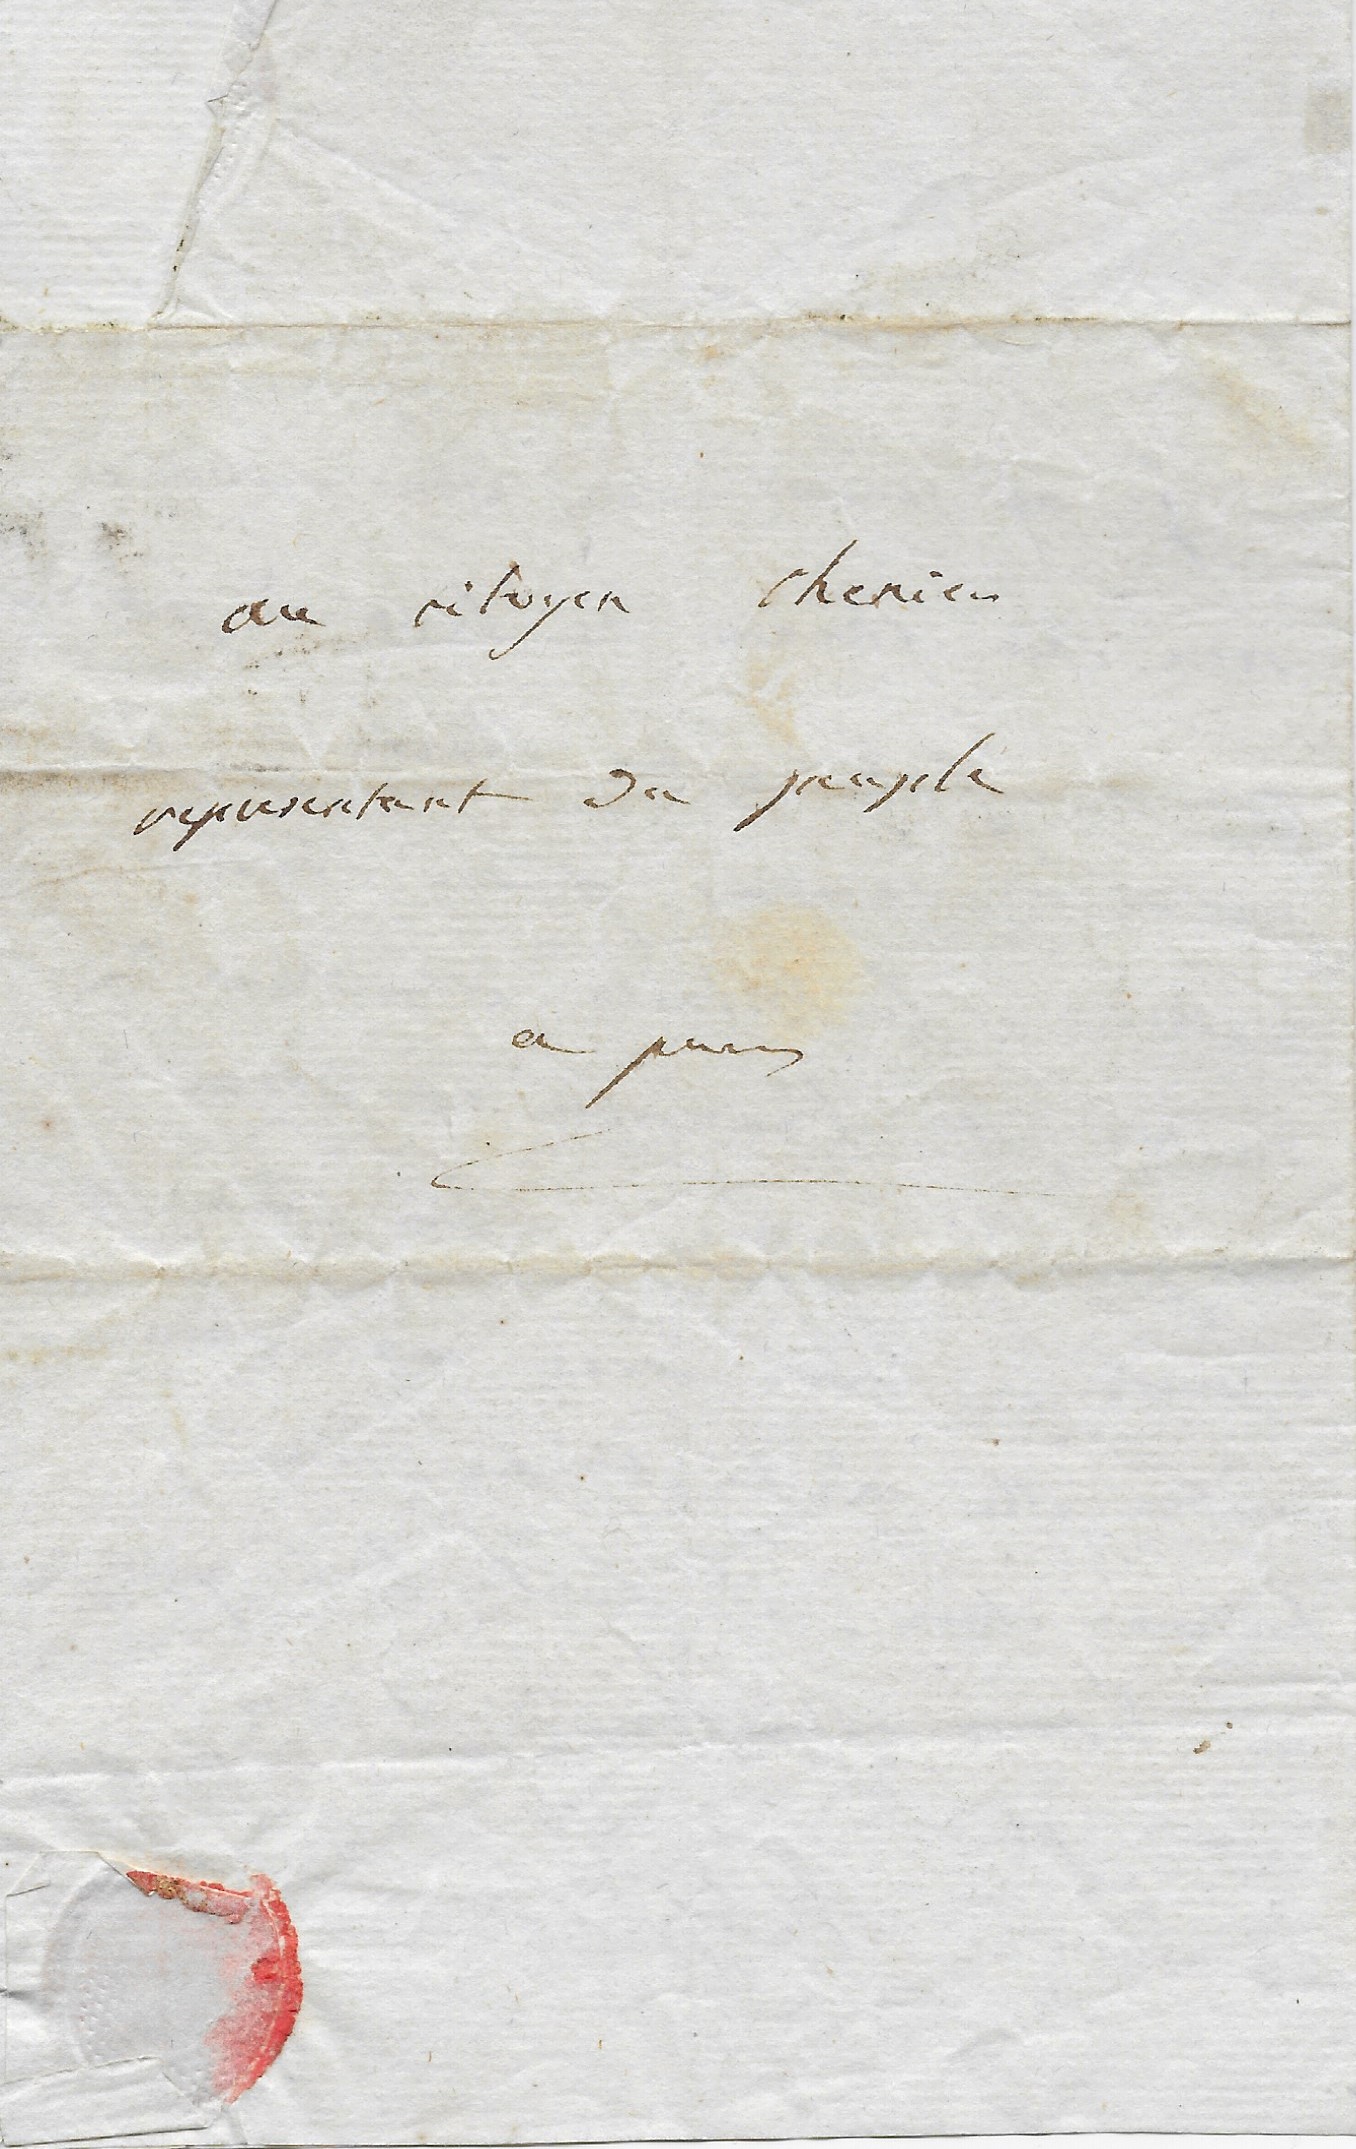 au citoyen chenier
representant du peuple
a paris